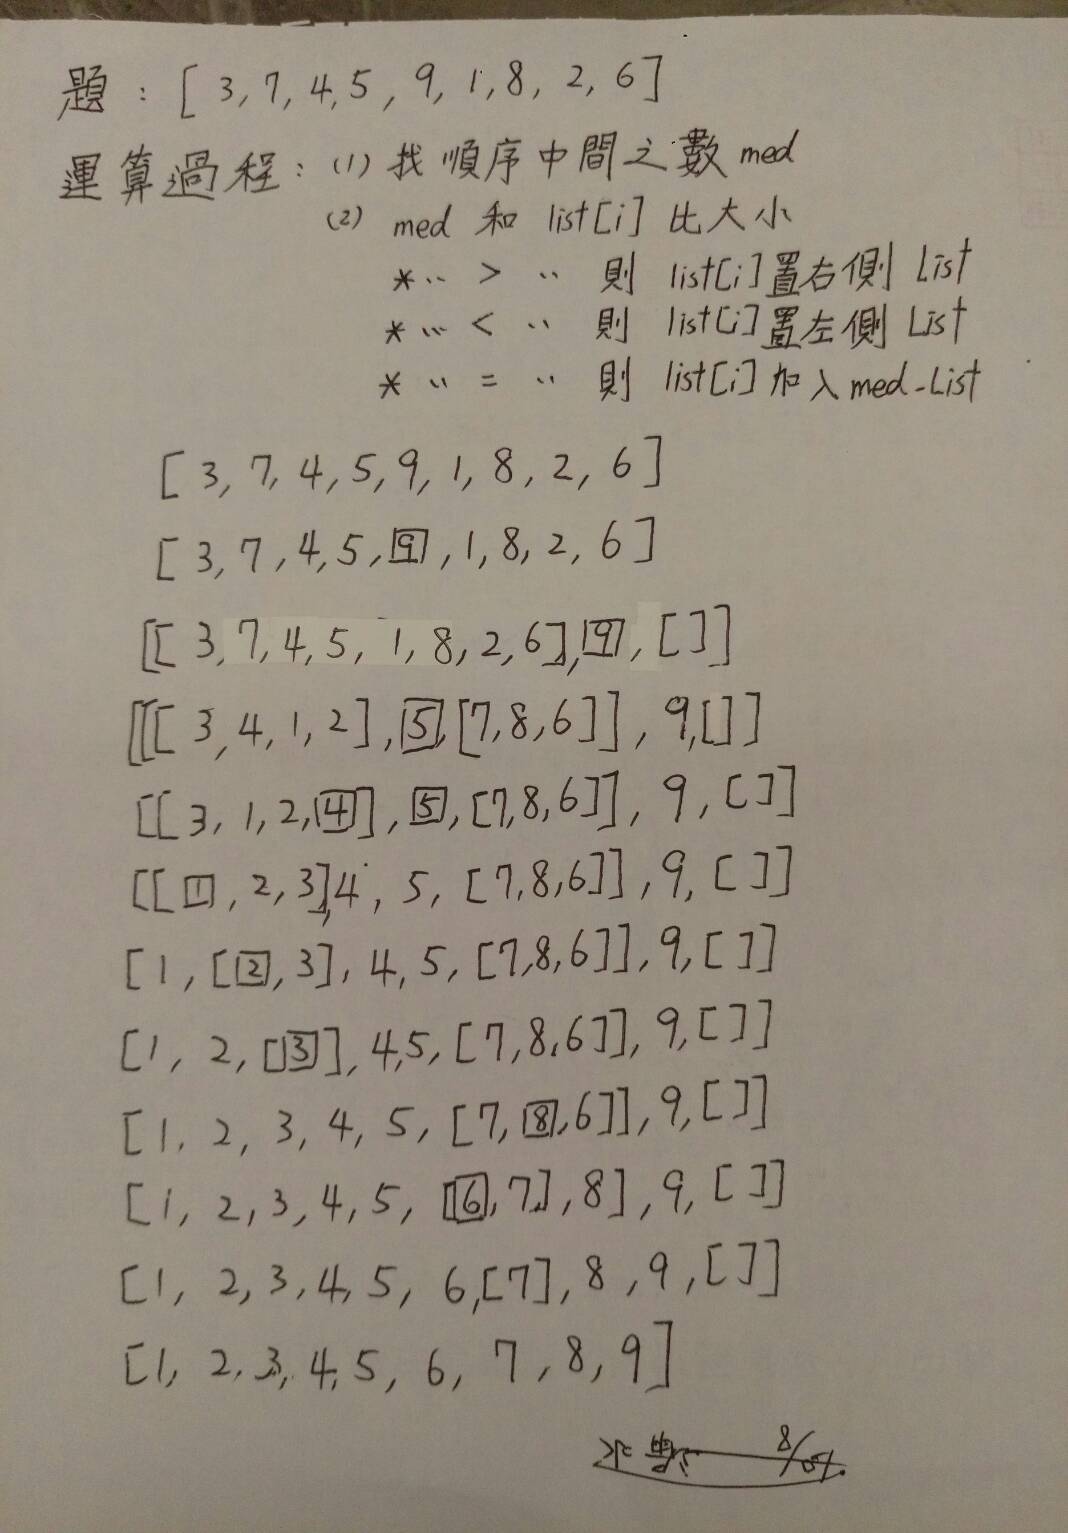 題：[ 3, 7, 4, 5 , 9, 1, 8, 2, 6 ]
運算過程：(1) 找順序中間之數 med
(2) med 和 list[i] 比大小
*‥ > ‥ 則 list[i]置右側 List
*… < ‥ 則 list[i]置左側 List
* ‥ = ‥ 則 list[i]加入med-List
[ 3, 7, 4, 5, 9, 1, 8, 2, 6 ]
[ 3, 7, 4, 5, 9, 1, 8, 2, 6 ]
[[ 3, 7, 4, 5, 1, 8, 2, 6], 9, [ ]]
[[[ 3, 4, 1, 2], 5, [7, 8, 6]], 9, [ ]]
[[ 3, 1, 2, 4], 5, [7, 8, 6]], 9, [ ]]
[[ 1, 2, 3], 4, 5, [7, 8, 6]], 9, [ ]]
[1, [2, 3], 4, 5, [7, 8, 6]], 9, [ ]]
[1, 2, [3]], 4, 5, [7, 8, 6]], 9, [ ]]
[1, 2, 3, 4, 5, [7, 8, 6]], 9, [ ]]
[1, 2, 3, 4, 5, [[6, 7], 8], 9, [ ]]
[1, 2, 3, 4, 5, 6, [7], 8, 9, [ ]]
[1, 2, 3, 4, 5, 6, 7, 8, 9]